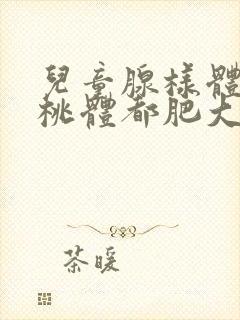 兒童腺樣體
桃體都肥大
茶暖